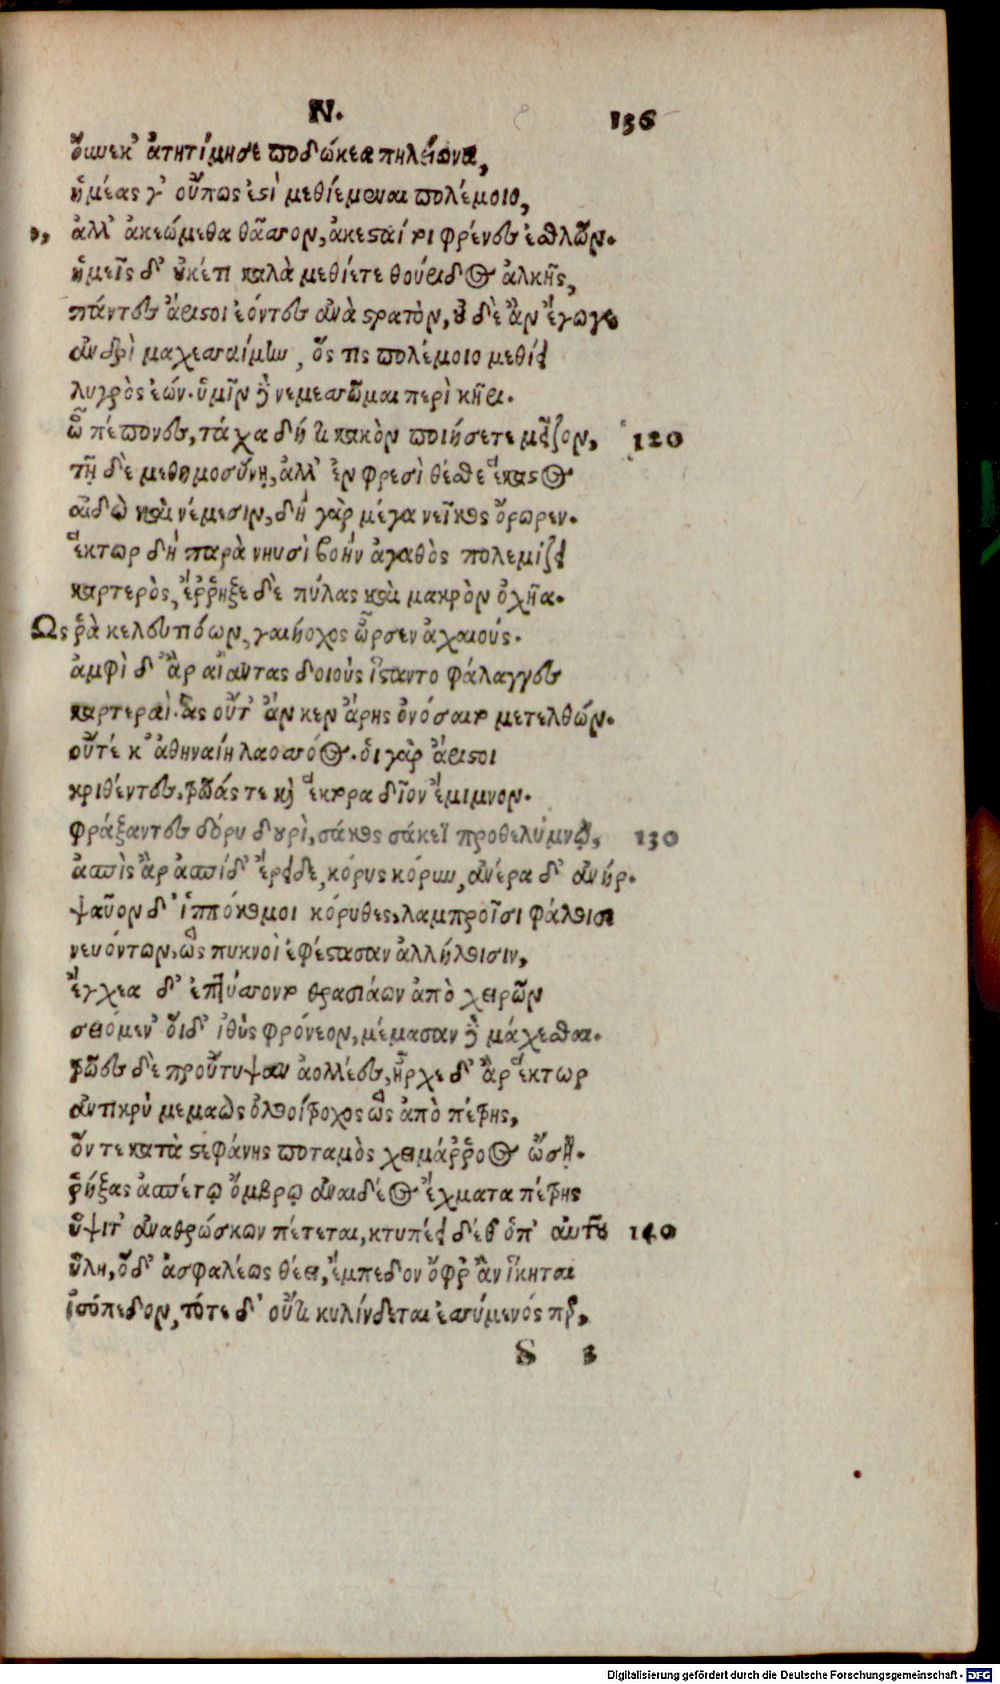 Ν. 136
οὕνεκ' ἀτητίμησε ποδώκεα πηλείωνα,
ἡμέας γ' οὔπως ἐστὶ μεθιέμεναι πολέμοιο,
,, ἀλλ' ἀκεώμεθα θᾶσσον, ἀκεσταί τοι φρένες ἐσθλῶν.
ἡμεῖς δ' οὐκέτι καλὰ μεθίετε θούριδος ἀλκῆς,
πάντες ἄριστοι ἐόντες ἀνὰ στρατὸν, οὐδὲ ἂν ἔγωγε
ἀνδρὶ μαχεσσαίμην, ὅς τις πολέμοιο μεθίει
λυγρὸς ἐών. ὑμῖν δὲ νεμεσσῶμαι περὶ κῆρι.
ὦ πέπονες, τάχα δή τι κακὸν ποιήσετε μεῖζον, 120
τῇ δὲ μεθημοσύνῃ, ἀλλ' ἐν φρεσὶ θέσθε ἕκαστος
αἰδῶ καὶ νέμεσιν, δὴ γὰρ μέγα νεῖκος ὄρωρεν.
ἕκτωρ δὴ παρὰ νηυσὶ βοὴν ἀγαθὸς πολεμίζει
καρτερὸς, ἔῤῥηξε δὲ πύλας καὶ μακρὸν ὀχῆα.
Ως ῥὰ κελευτιόων, γαιήοχος ὦρσεν ἀχαιούς.
ἀμφὶ δ' ἂρ αἴαντας δοιοὺς ἵσταντο φάλαγγες
καρτεραὶ. ἃς οὔτ' ἄν κεν ἄρης ὀνόσαιτο μετελθών.
οὔτέ κ' ἀθηναίη λαοσσόος. ὁι γὰρ ἄριστοι
κριθέντες, τρῶάς τε καὶ ἕκτορα δῖον ἔμιμνον.
φράξαντες δόρυ δουρὶ, σάκος σάκεϊ προθελύμνῳ, 130
ἀσπὶς ἂρ ἀσπίδ' ἔρειδε, κόρυς κόρυν, ἀνέρα δ' ἀνήρ.
ψαῦον δ' ἱππόκομοι κόρυθες, λαμπροῖσι φάλοισι
νευόντων, ὣς πυκνοὶ ἐφέστασαν ἀλλήλοισιν,
ἔγχεα δ' ἐπτύσσοντο θρασειάων ἀπὸ χειρῶν
σειόμεν' ὅιδ' ἰθὺς φρόνεον, μέμασαν δὲ μάχεσθαι.
τρῶες δὲ προὔτυψαν ἀολλέες, ἦρχε δ' ἂρ ἕκτωρ
ἀντικρὺ μεμαὼς ὀλοοίτροχος ὣς ἀπὸ πέτρης,
ὅν τε κατὰ στεφάνης ποταμὸς χειμάῤῥοος ὤσῃ.
ῥήξας ἀσπέτῳ ὄμβρῳ ἀναιδέος ἔχματα πέτρης
ὕψιτ' ἀναθρώσκων πέτεται, κτυπέει δέθ' ὑπ' ἀυτοῦ 140
ὕλη, ὅδ' ἀσφαλέως θέει, ἔμπεδον ὄφρ' ἂν ἵκηται
ἰσόπεδον, τότε δ' οὔτι κυλίνδεται ἐσσύμενός περ,
S 3
Digitalisierung gefördert durch die Deutsche Forschungsgemeinschaft - DFG